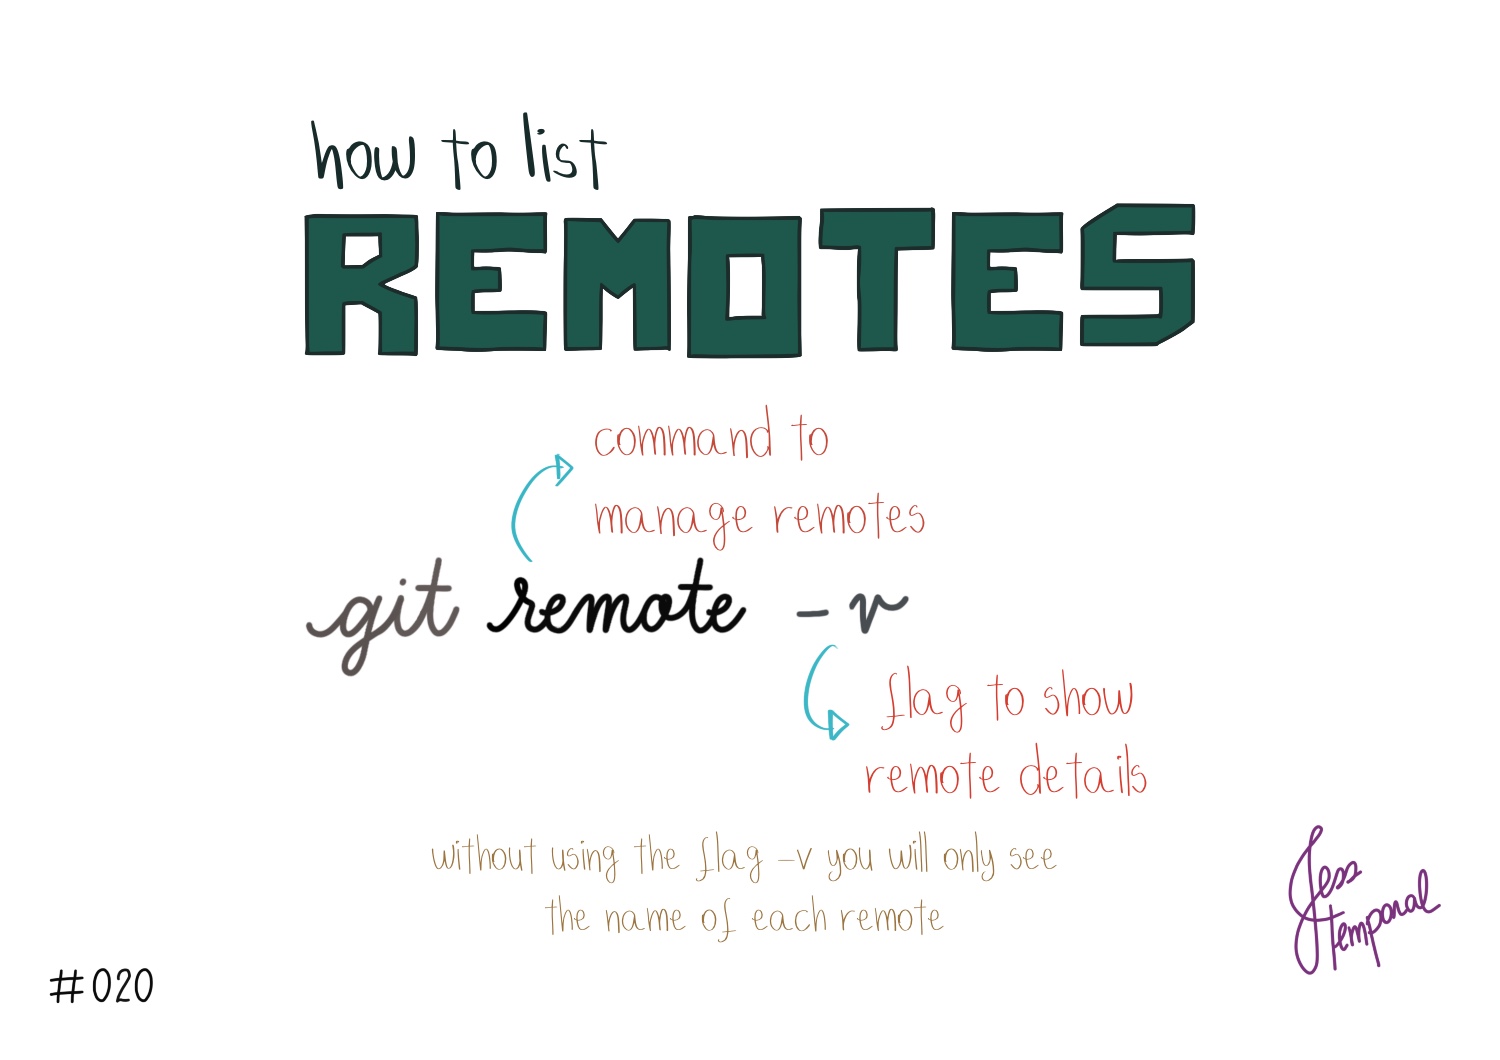 how to list
REMOTES
command to
manage remotes
git remote -v
flag to show
remote details
without using the flag -v you will only see
the name of each remote
Jess
temporal
#020